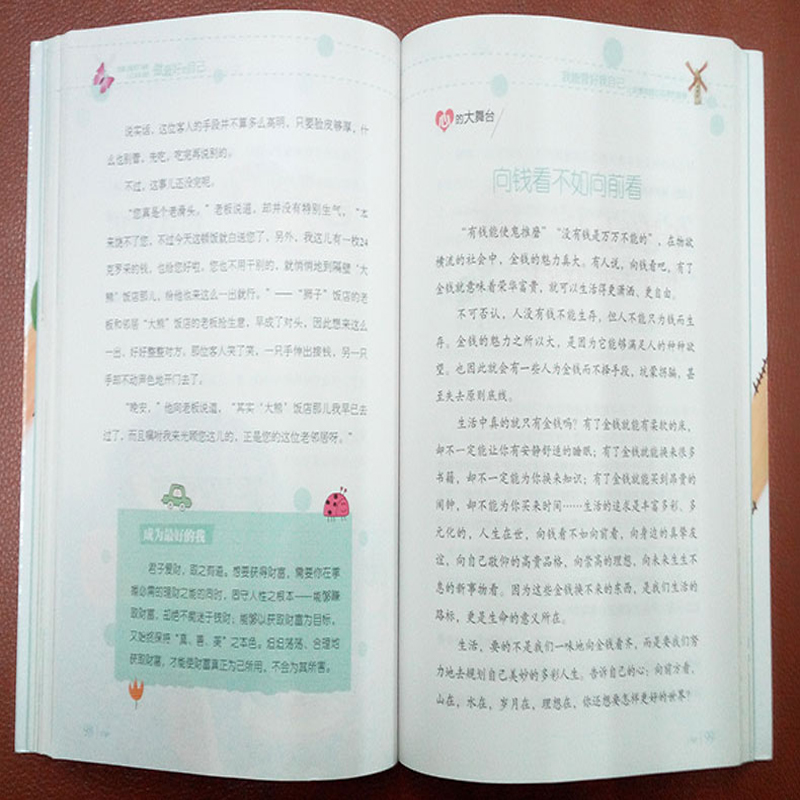 做最好的自己
说实话，这位客人的手段并不算多么高明，只要脸皮够厚，什
么也别管，先吃，吃完再说别的。
不过，这事儿还没完呢。
“您真是个老滑头。”老板说道，却并没有特别生气，“本
来饶不了您，不过今天这顿饭就白送您了。另外，我这儿有一枚24
克罗采的钱，也给您好啦，您也不用干别的，就悄悄地到隔壁‘大
熊’饭店那儿，给他也来这么一出就行。”——“狮子”饭店的老
板和邻居“大熊”饭店的老板抢生意，早成了对头，因此想来这么
一出，好好整整对方。那位客人笑了笑，一只手伸出接钱，另一只
手却不动声色地开门去了。
“晚安，”他向老板说道，“其实‘大熊’饭店那儿我早已去
过了，而且嘱咐我来光顾您这儿的，正是您的这位老邻居呀。”
成为最好的我
君子爱财，取之有道。想要获得财富，需要你在掌
握必需的理财之能的同时，固守人性之根本——能够赚
取财富，却绝不痴迷于钱财；能够以获取财富为目标，
又始终保持“真、善、美”之本色。坦坦荡荡、合理地
获取财富，才能使财富真正为己所用，不会为其所害。
98
我能管好我自己
心的大舞台
向钱看不如向前看
“有钱能使鬼推磨”“没有钱是万万不能的”，在物欲
横流的社会中，金钱的魅力真大。有人说，向钱看吧，有了
金钱就意味着荣华富贵，就可以生活得更潇洒、更自由。
不可否认，人没有钱不能生存，但人不能只为钱而生
存。金钱的魅力之所以大，是因为它能够满足人的种种欲
望。也因此就会有一些人为金钱而不择手段，坑蒙拐骗，甚
至失去原则底线。
生活中真的就只有金钱吗？有了金钱就能有柔软的床，
却不一定能让你有安静舒适的睡眠；有了金钱就能换来很多
书籍，却不一定能为你换来知识；有了金钱就能买到昂贵的
闹钟，却不能为你买来时间……生活的追求是丰富多彩、多
元化的，人生在世，向钱看不如向前看，向身边的真挚友
谊，向自己敬仰的高贵品格，向崇高的理想，向未来生生不
息的新事物看。因为这些金钱换不来的东西，是我们生活的
路标，更是生命的意义所在。
生活，要的不是我们一味地向金钱看齐，而是要我们努
力地去规划自己美妙的多彩人生。告诉自己的心：向前方看，
山在，水在，岁月在，理想在，你还想要怎样更好的世界？
99